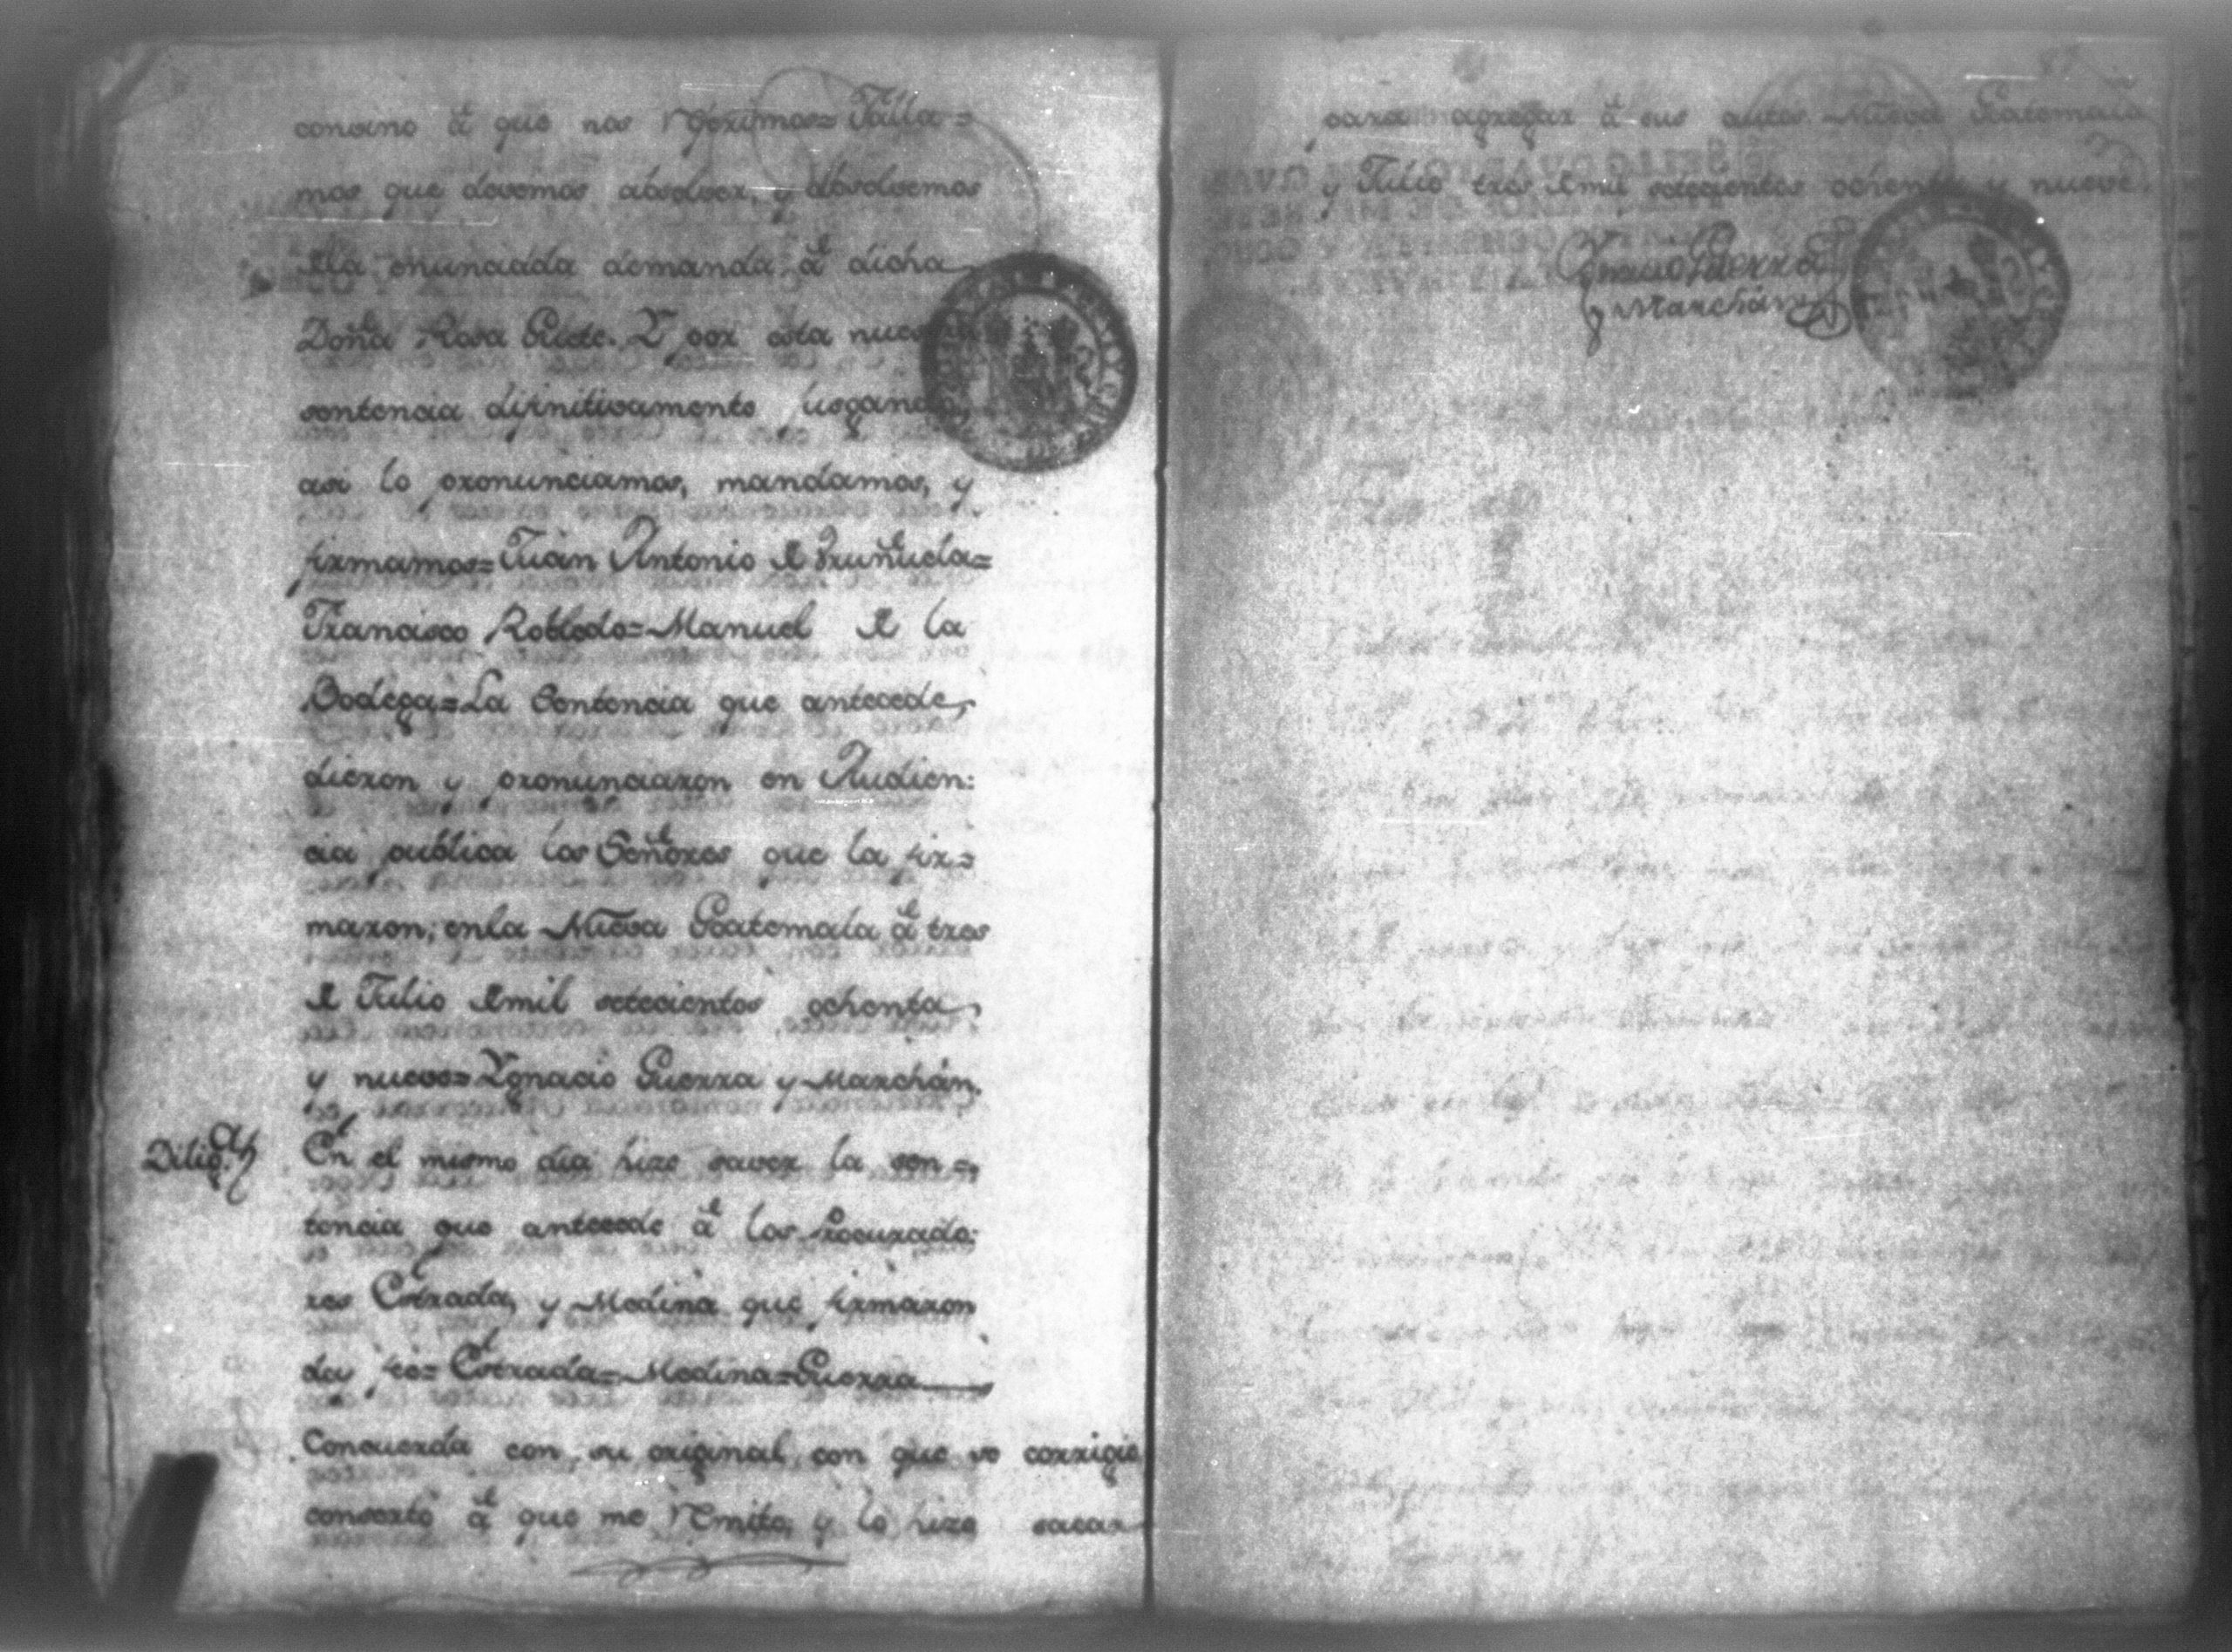 convino á que nos referimos= Falla=
mos que devemos absolver, y absolvemos
dela enunciada demanda, á dicha
Doña Rosa Griete. Y por esta nuestra
sentencia difinitivamente jusgando,
asi lo pronunciamos, mandamos, y
firmamos= Juan Antonio de Uruñuela=
Francisco Robledo= Manuel de la
Bodega= La Sentencia que antecede,
dieron y pronunciaron en Audien:
cia publica los Señores que la fir=
maron; enla Nueva Goatemala á tres
de Julio demil setecientos ochenta,
y nueve= Ygnacio Guerra y Marchán.
Dilig.ª
En el mismo dia hize saver la sen=
tencia que antecede á los Procurado:
res Estrada, y Medina que firmaron
doy fee= Estrada= Medina= Guerra
Concuerda con su original, con que se corrigio
consertó á que me remito, y lo hize sacar
para agregar á sus autos. Nueva Goatemala
y Julio tres demil setecientos ochenta y nueve.
Ignacio Guerra
y Marchán